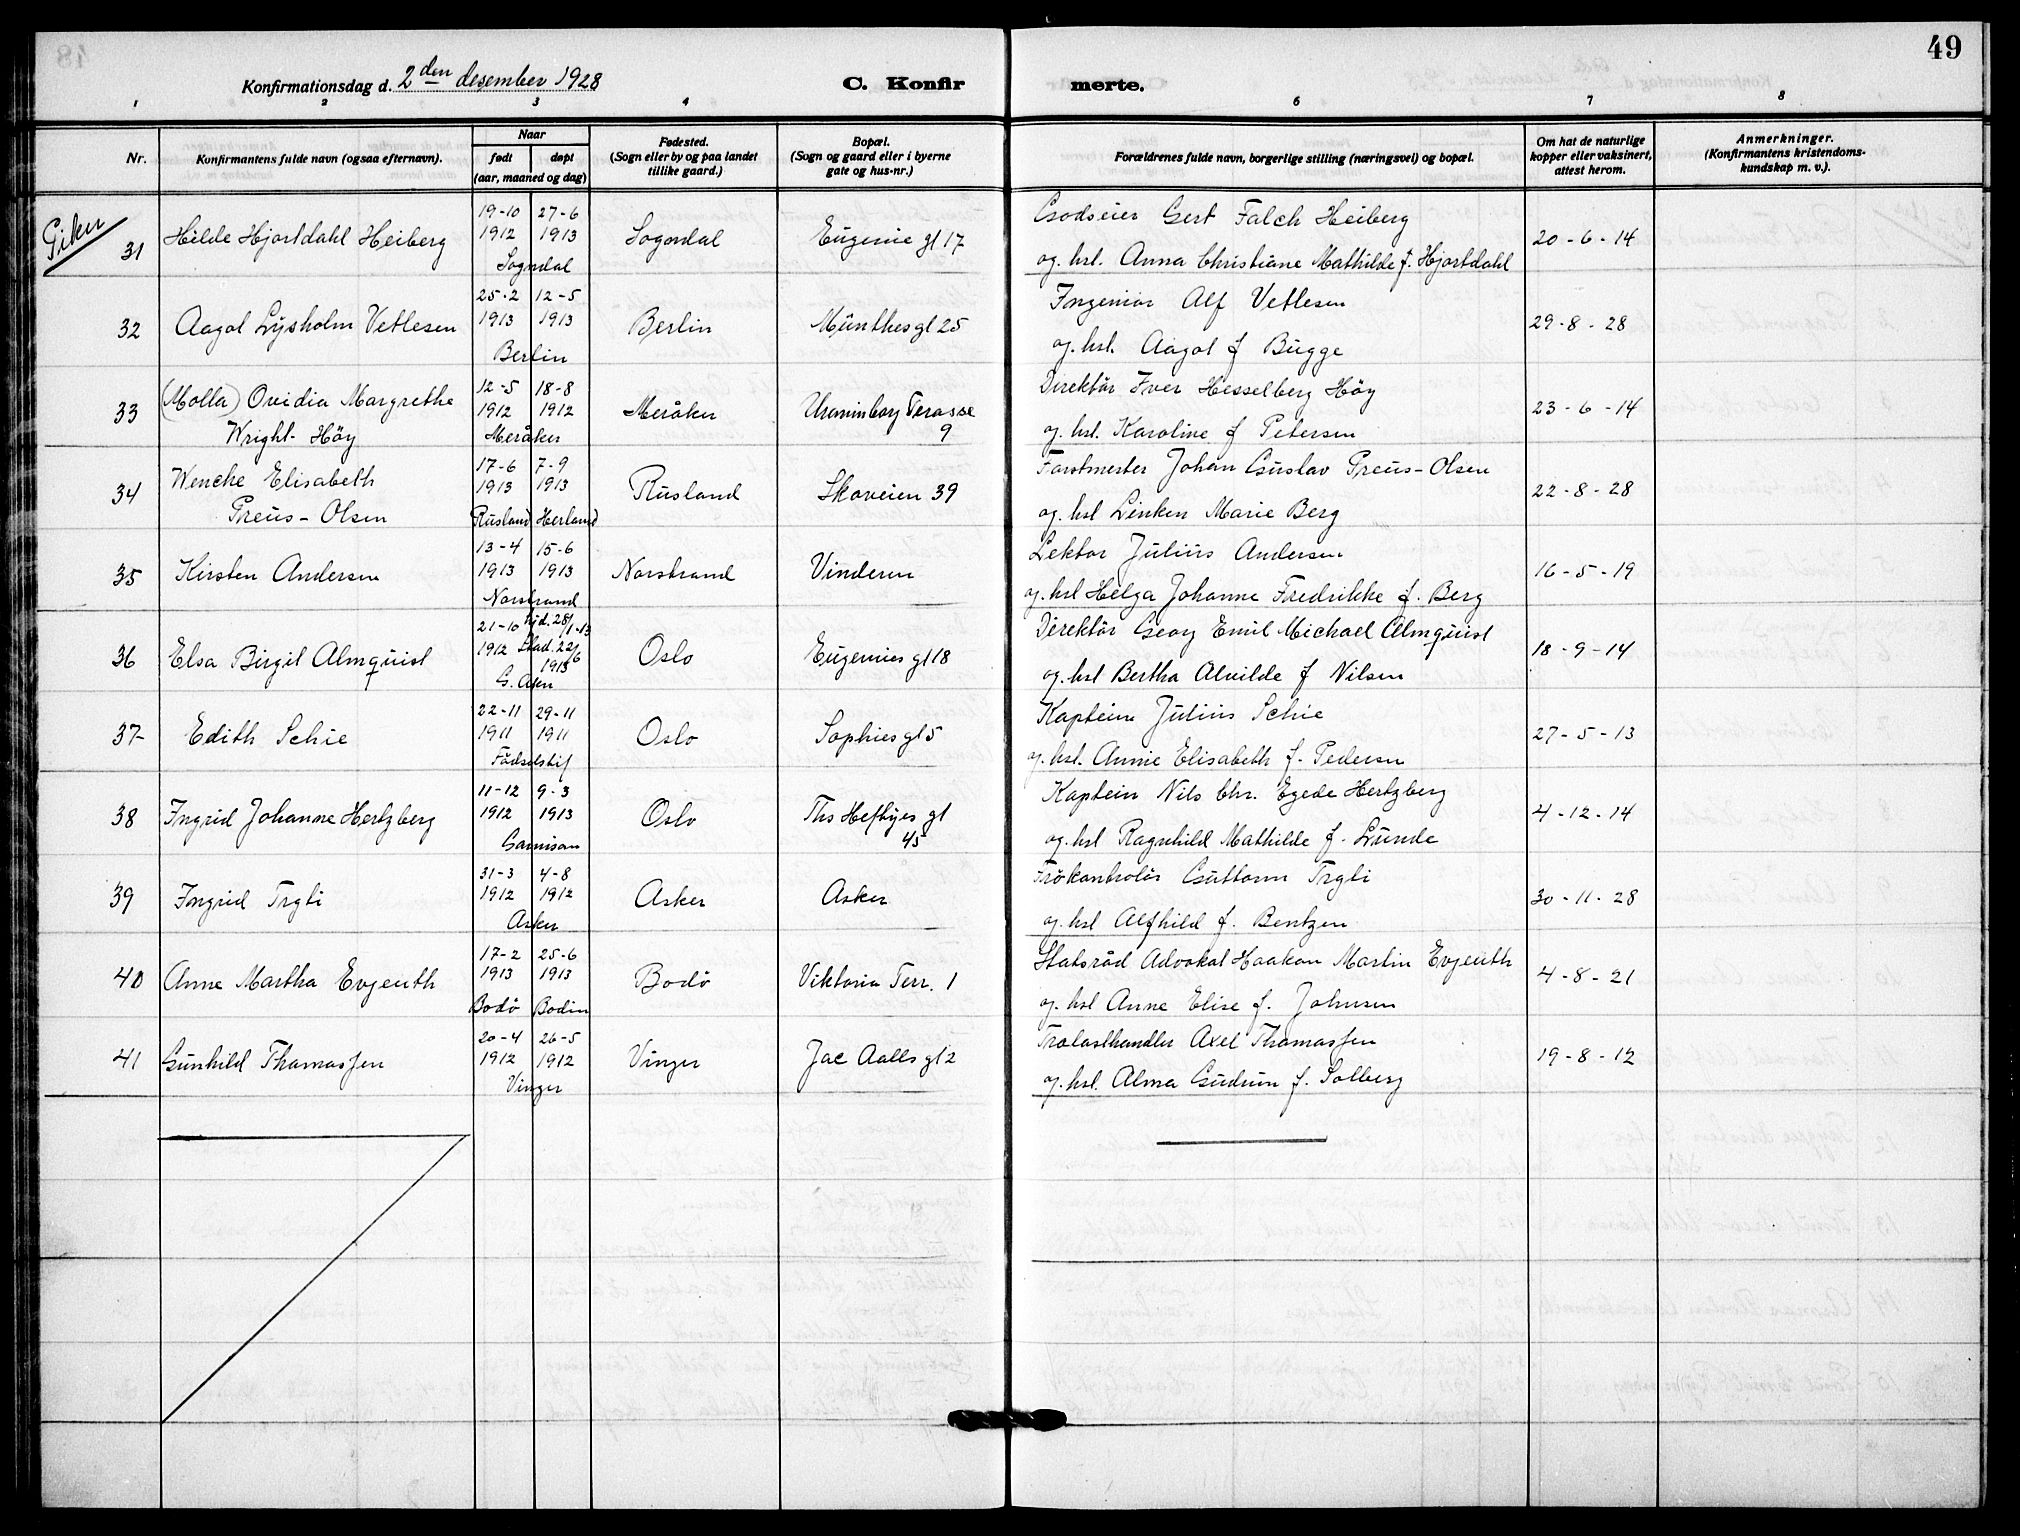 49
Konfirmationsdag d. 2den desember 1928 C. Konfir merte.
1 2 3 4 5 6 7 8
Nr.
Konfirmantens fulde navn (ogsaa efternavn).
Naar
født døpt
(aar, maaned og dag)
Fødested.
(Sogn eller by og paa landet
tillike gaard.)
Bopæl.
(Sogn og gaard eller i byerne
gate og hus-nr.)
Forældrenes fulde navn, borgerlige stilling (næringsvei) og bopæl.
Om hat de naturlige
kopper eller vaksinert,
attest herom.
Anmerkninger.
(Konfirmantens kristendoms-
kundskap m. v.).
Piker
19-10 27-6 Godseier Gert Falch Heiberg
31 Hilde Hjortdahl Heiberg 1912 1913 Sogndal Eugenie gt 17 20-6-14
Sogndal og. hst. Anna Christiane Mathilde f. Hjortdahl
25-2 12-5 Ingeniør Alf Vetlesen
32 Aagot Lysholm Vetlesen 1913 1913 Berlin Münthes gt 25 29-8-28
Berlin og. hst. Aagot f Bugge
12-5 18-8 Direktør Iver Hesselberg Höy
33 (Molla) Ovidia Margrethe 1912 1912 Meråker Uranienborg Terasse 23-6-14
Wright-Höy Meråker 9 og. hst. Karoline f Petersen
17-6 7-9 Forstmester Johan Gustav Preus-Olsen
34 Wenche Elisabeth 1913 1913 Rusland Skoveien 39 22-8-28
Preus-Olsen Rusland Herland og. hst Linken Marie Berg
13-4 15-6 Lektor Julius Andersen
35 Kirsten Andersen 1913 1913 Norstrand Vinderen 16-5-19
Norstrand og. hst Helga Johanne Fredrikke f. Berg
21-10 hjd. 28/1-13 Direktør Georg Emil Michael Almquist
36 Elsa Birgit Almquist 1912 Stad. 22/6 1913 Oslo Eugenies gt 18 18-9-14
G. Aker og. hst Bertha Alvilde f Nilsen
22-11 29-11 Kaptein Julius Schie
37 Edith Schie 1911 1911 Oslo Sophies gt 5 27-5-13
Födselstif og. hst. Annie Elisabeth f. Pedersen
11-12 9-3 Kaptein Nils Chr. Egede Hertzberg
38 Ingrid Johanne Hertzberg 1912 1913 Oslo Ths Heftyes gt 4-12-14
Garnison 45 og. hst Ragnhild Mathilde f. Lunde
31-3 4-8 Frökontrolör Guttorm Trgti
39 Ingrid Trgti 1912 1912 Asker Asker 30-11-28
Asker og. hst Alfhild f. Bentzen
17-2 25-6 Statsråd Advokat Haakon Martin Evjenth
40 Anne Martha Evjenth 1913 1913 Bodö Viktoria Terr. 1 4-8-21
Bodö Bodin og. hst Anne Elise f. Johnsen
20-4 26-5 Trolasthandler Axel Thomassen
41 Gunhild Thomassen 1912 1912 Vinger Jac Aalls gt 2 19-8-12
Vinger og. hst. Alma Gudrun f. Solberg